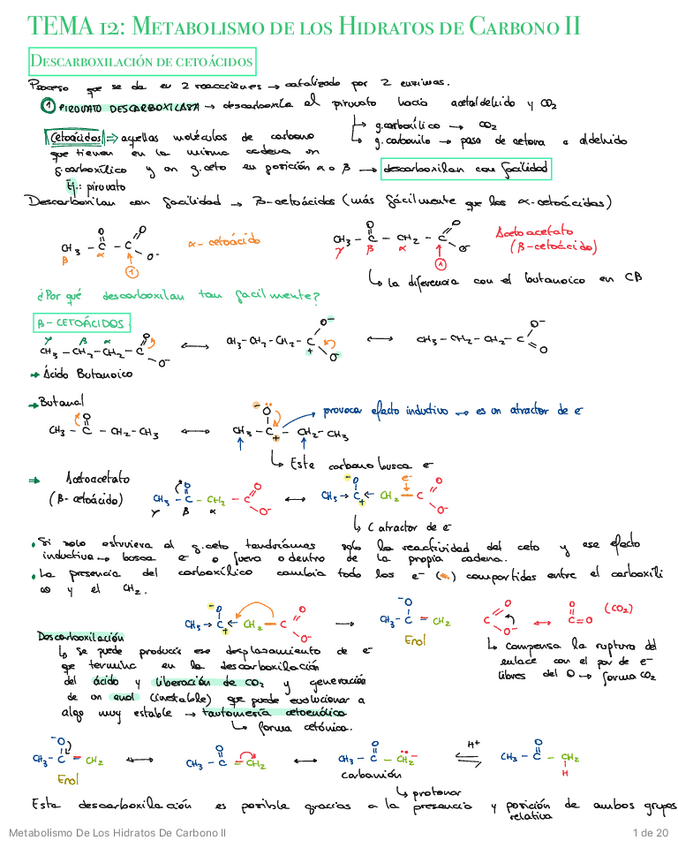 TEMA 12: METABOLISMO DE LOS HIDRATOS DE CARBONO II
DESCARBOXILACIÓN DE CETOÁCIDOS
Proceso que se da en 2 reacciones → catalizado por 2 enzimas.
① PIRUVATO DESCARBOXILASA → descarboxila el piruvato hacia acetaldehído y CO2
↳ g.carboxílico → CO2
Cetoácidos ⇒ aquellas moléculas de carbono ↳ g.carbonilo → pasa de cetona a aldehído
que tienen en la misma cadena un
g.carboxílico y un g.ceto en posición α o β → descarboxilan con facilidad
Ej.: piruvato
Descarboxilan con facilidad → β-cetoácidos (más fácilmente que los α-cetoácidos)
CH3 - C - C O O- α-cetoácido CH3 - C - CH2 - C O O- Acetoacetato
β α ① γ β α ① (β-cetoácido)
↳ la diferencia con el butanoico en Cβ
¿Por qué descarboxilan tan facilmente?
β-CETOÁCIDOS
γ β α
CH3 - CH2 - CH2 - C O O- ↔ CH3 - CH2 - CH2 - C + O- O- ↔ CH3 - CH2 - CH2 - C O- O
→ Ácido Butanoico
→ Butanal
CH3 - C - CH2 - CH3 ↔ CH3 - C + - CH2 - CH3 provocar efecto inductivo → es un atractor de e-
↳ Este carbono busca e-
⇒ Acetoacetato
(β-cetoácido) CH3 - C - CH2 - C O O- ↔ CH3 → C + ← CH2 - C O O-
γ β α
↳ C atractor de e-
• Si solo estuviera el g.ceto tendríamos solo la reactividad del ceto y ese efecto
inductivo → busca e- o fuera o dentro de la propia cadena.
• La presencia del carboxílico cambia todo los e- (•) compartidos entre el carboxíli
co y el CH2.
CH3 → C + ← CH2 - C O O- → CH3 - C = CH2 C O O- ↔ C=O (CO2)
Enol
Descarboxilación
↳ Se puede producir ese desplazamiento de e- ↳ compensa la ruptura del
que termina en la descarboxilación enlace con el par de e-
del ácido y liberación de CO2 y generación libres del O → forma CO2
de un enol (inestable) que puede evolucionar a
algo muy estable → tautomería cetoenólica
↳ forma cetónica.
CH3 - C = CH2 ↔ CH3 - C = CH2 ↔ CH3 - C - CH2 ⇌ H+ CH3 - C - CH2 H
Enol carbanión
↳ protonar
Esta descarboxilación es posible gracias a la presencia y posición de ambos grupos
relativa
Metabolismo De Los Hidratos De Carbono II 1 de 20